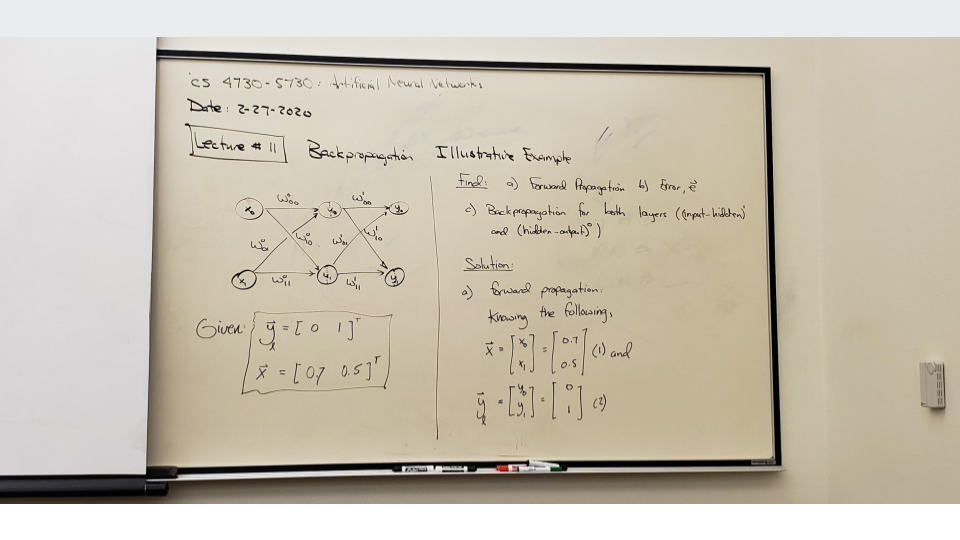 CS 4730-5730: Artificial Neural Networks
Date: 2-27-2020
Lecture # 11 Backpropagation Illustrative Example
x₀ w⁰₀₀ y₀ w¹₀₀ y₀
w⁰₀₁ w⁰₁₀ w¹₀₁ w¹₁₀
x₁ w⁰₁₁ y₁ w¹₁₁ y₁
Given: y⃗ = [ 0 1 ]ᵀ
x⃗ = [ 0.7 0.5 ]ᵀ
Find: a) Forward Propagation b) Error, e⃗
c) Backpropagation for both layers ((input-hidden)¹
and (hidden-output)⁰)
Solution:
a) forward propagation:
Knowing the following,
x⃗ = [ x₀ x₁ ] = [ 0.7 0.5 ] (1) and
y⃗ = [ y₀ y₁ ] = [ 0 1 ] (2)